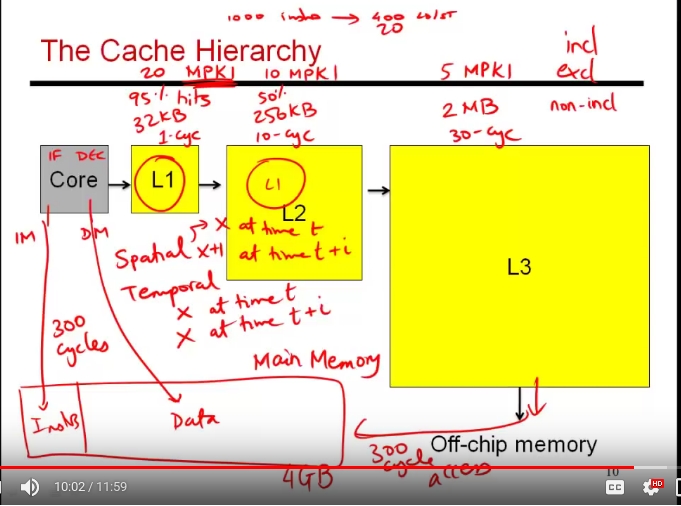 1000 instrs → 400 ld/st
20
The Cache Hierarchy
incl
excl
non-incl
20 MPKI
95% hits
32KB
1-cyc
10 MPKI
50%
256KB
10-cyc
5 MPKI
2 MB
30-cyc
IF DEC
Core
L1
L1
L2
L3
IM
DM
Spatial
X at time t
X+1 at time t+i
Temporal
X at time t
X at time t+i
300
cycles
Main Memory
Instrs
Data
4GB
300
cycle
access
Off-chip memory
10
10:02 / 11:59
CC
HD